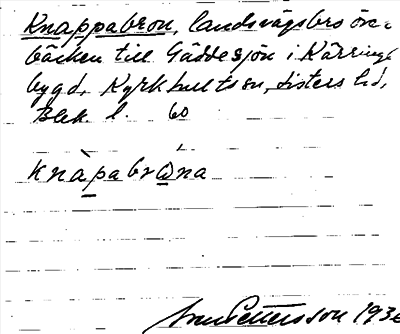 Knappabron, landsvägsbro öv.
bäcken till Gäddesjön i Kärringe-
bygd, Kyrkhults sn, Listers hd,
Blek. l. 60
knàpabrǻna
Pettersson 1936